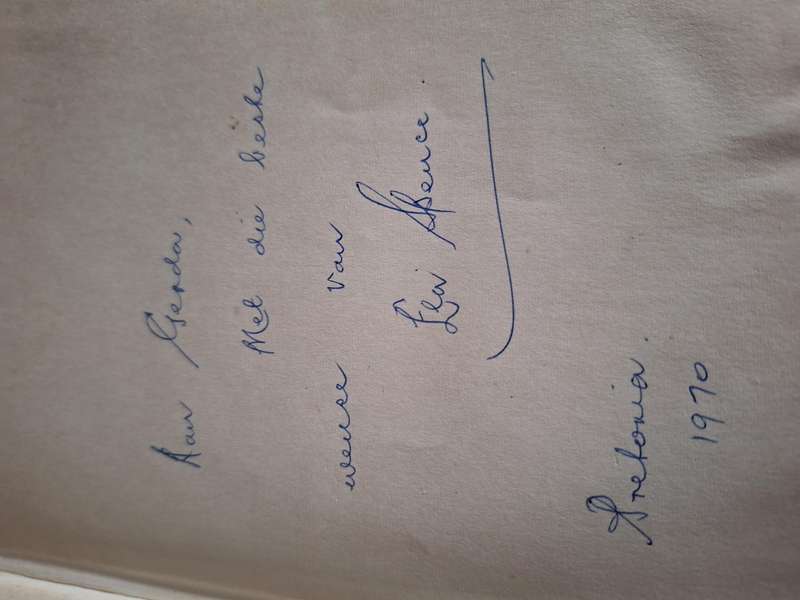 Aan Gerda,
Met die beste
wense van
Ela Spence
Pretoria.
1970